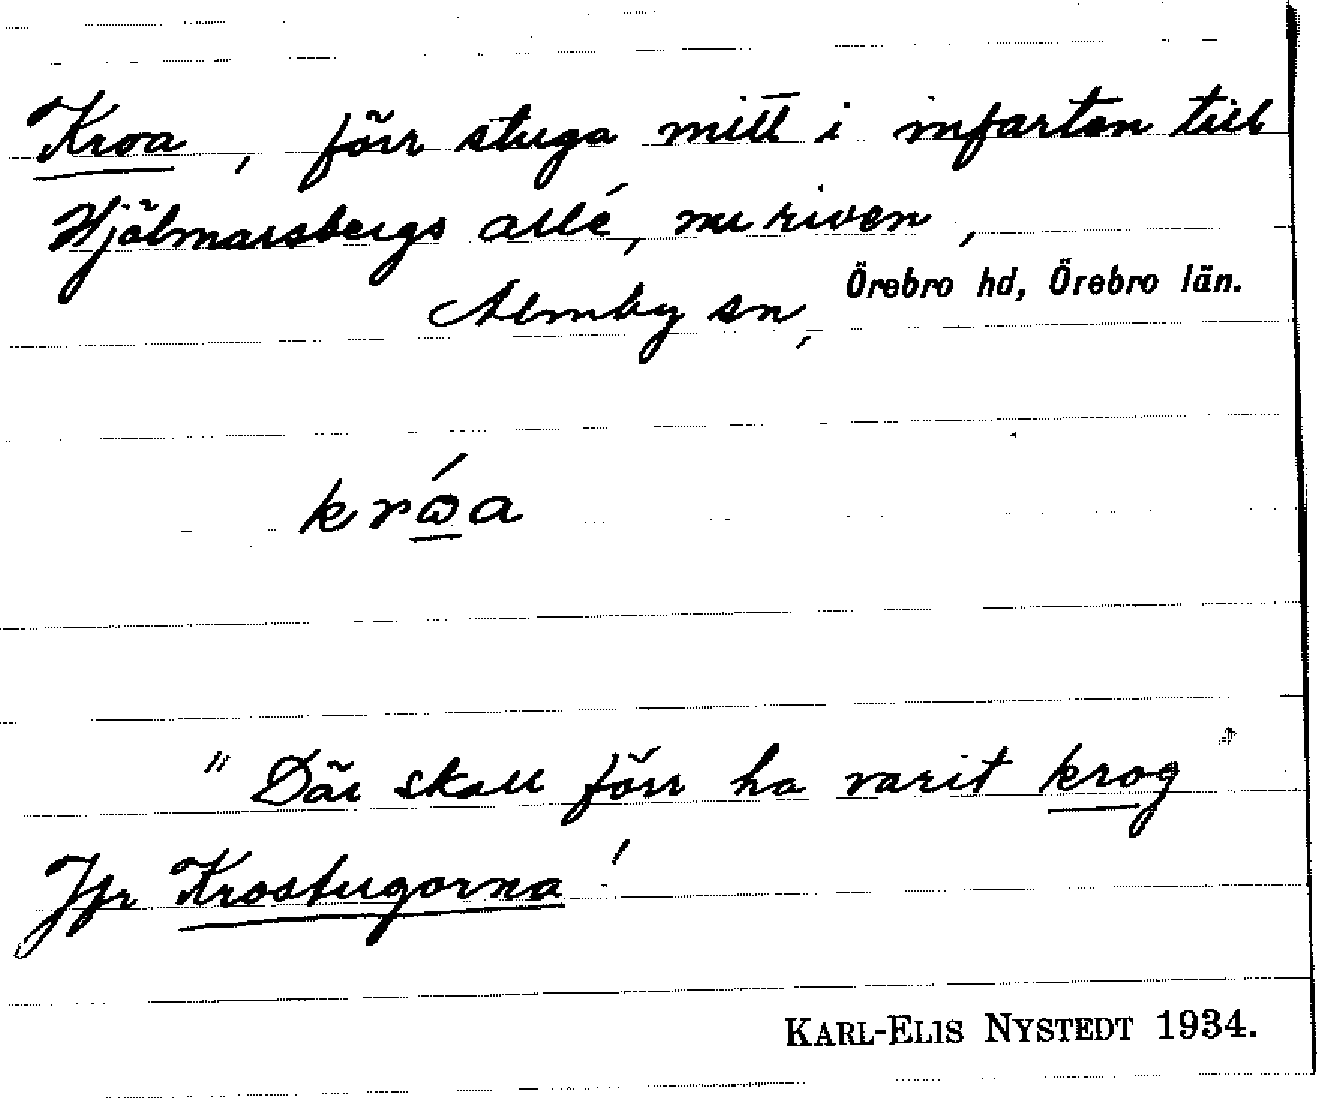 Kroa, förr stuga mitt i infarten till
Hjälmarsbergs allé, nu riven,
Almby sn, Örebro hd, Örebro län.
krώa
"Där skall förr ha varit krog"
Jfr Krostugorna!
KARL-ELIS NYSTEDT 1934.